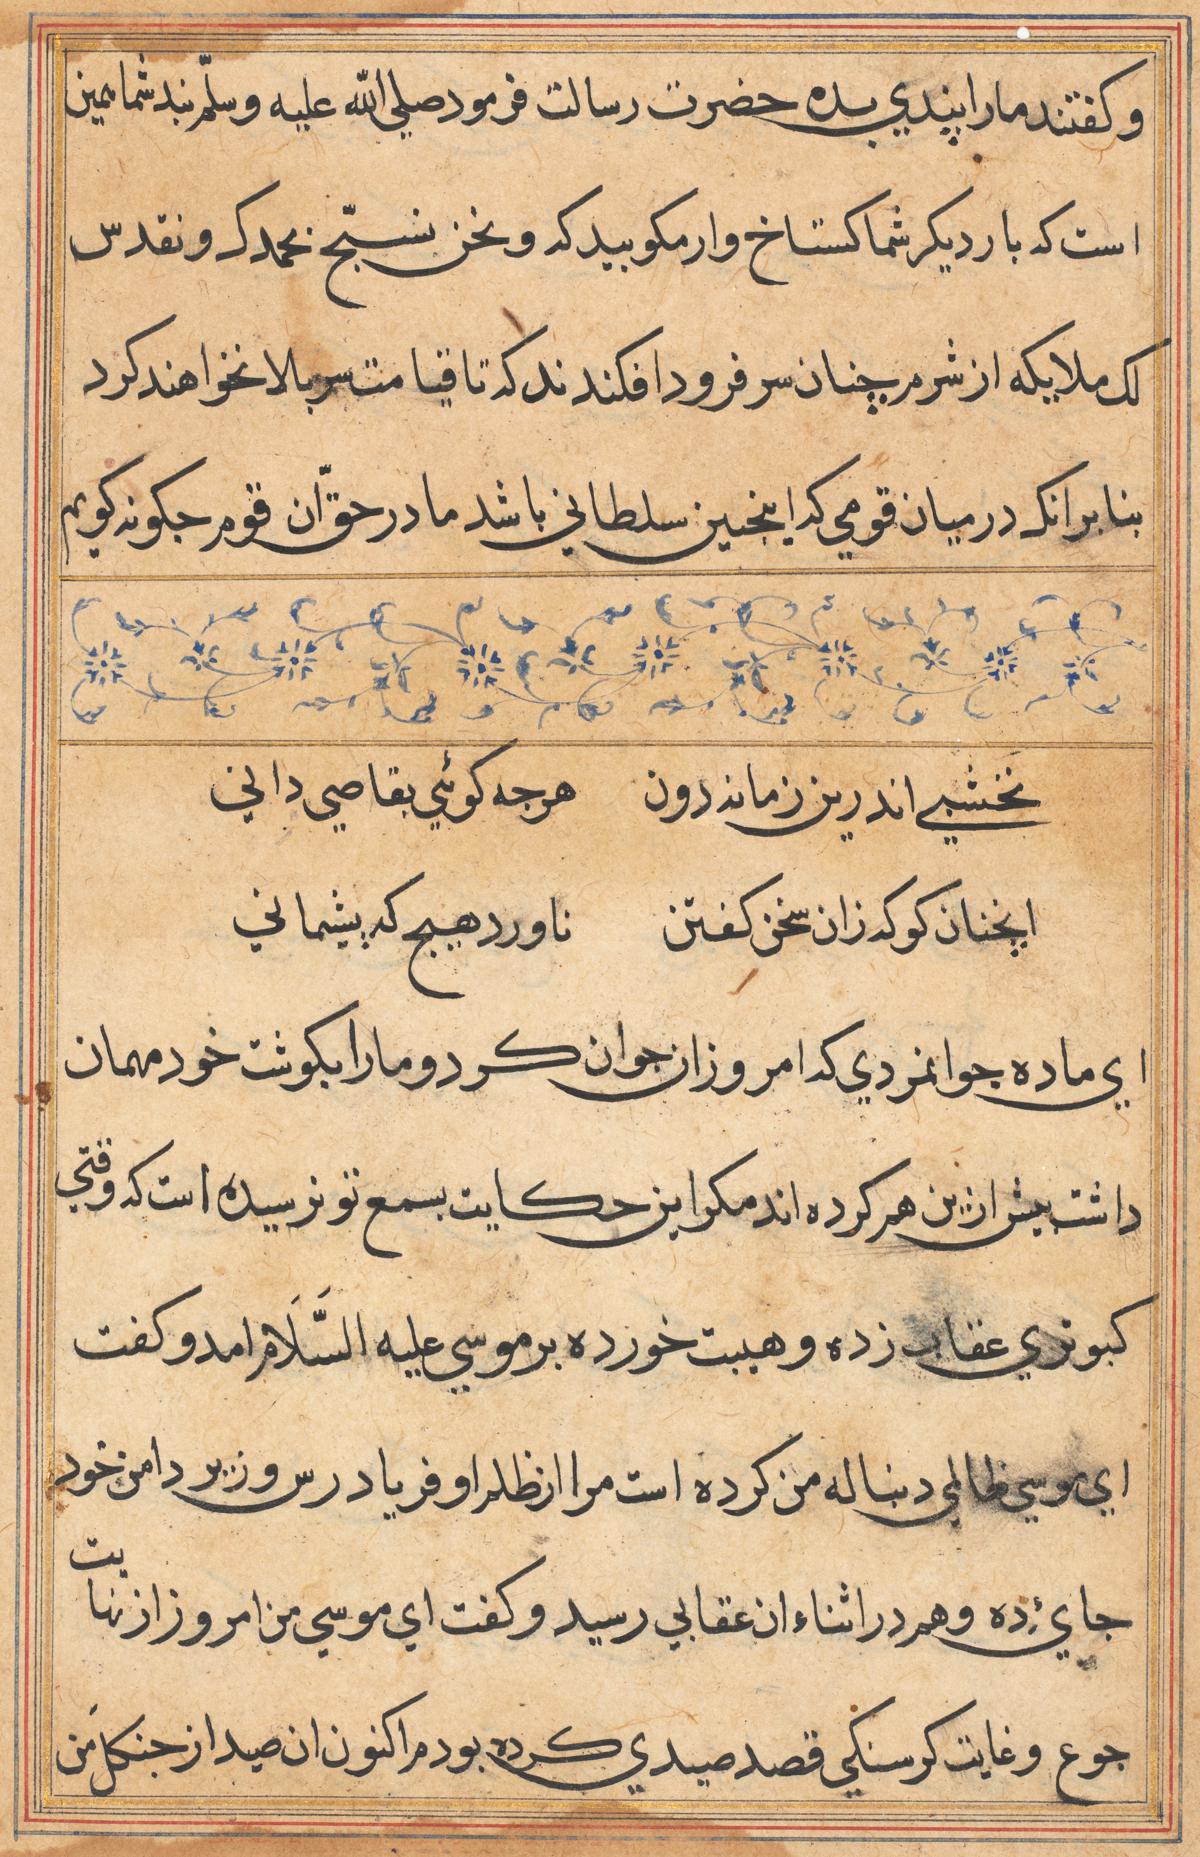 و کفتند ما را پندي بده حضرت رسالت فرمود صلي الله عليه وسلّم پند شما همين
است که بار ديکر شما کستاخ وار مکوييد که و نحن نسبّح بحمدک و نقدس
لک ملايکه از شرم چنان سر فرود افکندند که تا قيامت سر بالا نخواهند کرد
بنا بر انک در ميان قومي که اينجنين سلطاني باشد ما در حقّ ان قوم جکونه کويم
نخشبي اندرين زمانه درون هرجه کوئي بقاصي داني
اپخنان کو که زان سخن کفتن ناورد هيج که پشيماني
اي ماده جوانمردي که امروز ان جوان کرد و ما را بکوشت خود مهمان
داشت پيش ازين هم کرده اند مکر اين حکايت بسمع تو نرسيده است که وقتي
کبوتري عقاب زده و هيبت خورده بر موسي عليه السَّلَام امد و کفت
اي موسي ظالمي دنباله من کرده است مرا از ظلم او فرياد رس و زير دامن خود
جايء ده و هم در اثناء ان عقابي رسيد و کفت اي موسي من امروز از نهايت
جوع و غايت کرسنکي قصد صيدي کرده بودم اکنون ان صيد از جنکل من